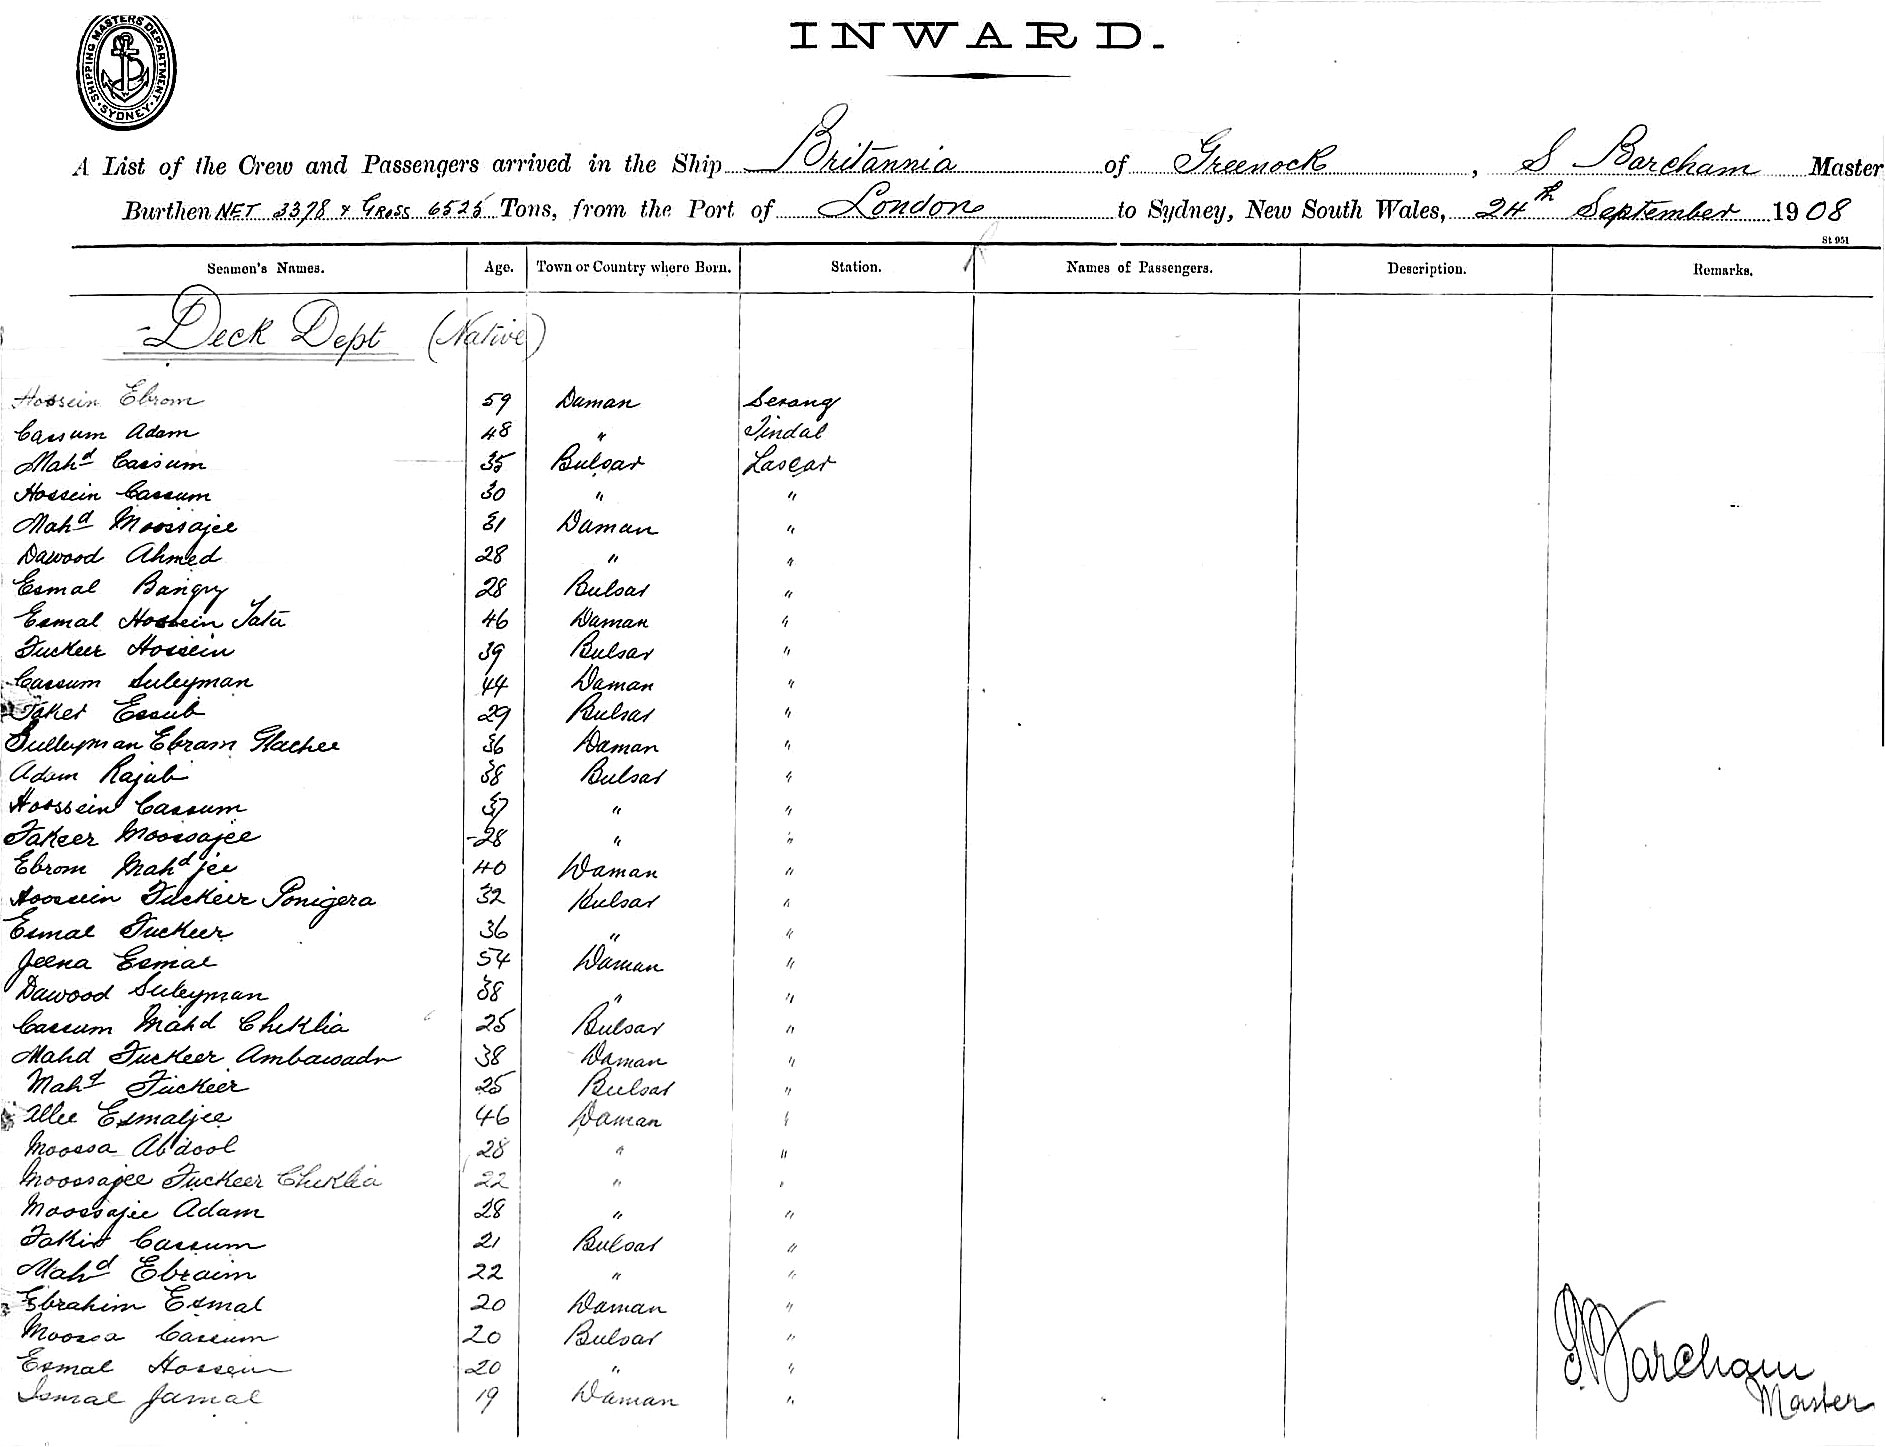 SHIPPING MASTERS DEPARTMENT
SYDNEY
INWARD.
A List of the Crew and Passengers arrived in the Ship Britannia of Greenock, S Barcham Master
Burthen NET 3378 & GROSS 6525 Tons, from the Port of London to Sydney, New South Wales, 24th September 1908
St 951
Seamen's Names. Age. Town or Country where Born. Station. Names of Passengers. Description. Remarks.
Deck Dept (Native)
Hossein Ebrom 59 Daman Serang
Cassum Adam 48 " Tindal
Mahd Cassum 35 Bulsar Lascar
Hossein Cassum 30 " "
Mahd Moossajee 31 Daman "
Dawood Ahmed 28 " "
Esmal Bangry 28 Bulsar "
Esmal Hossein Tatu 46 Daman "
Fuckeer Hossein 39 Bulsar "
Cassum Suleyman 44 Daman "
Faker Essub 29 Bulsar "
Sulleyman Ebram 36 Daman "
Adam Rajab 38 Bulsar "
Hoossein Cassum 37 " "
Fakeer Moossajee 28 " "
Ebrom Mahd jee 40 Daman "
Hoossein Fuckeer Ponigera 32 Bulsar "
Esmal Fuckeer 36 " "
Jeena Esmal 54 Daman "
Dawood Suleyman 38 " "
Cassum Mahd Cheklia 25 Bulsar "
Mahd Fuckeer 38 Daman "
Mahd Fuckeer 25 Bulsar "
Allee Esmaljee 46 Daman "
Moossa Abdool 28 " "
Moossajee Fuckeer Cheklia 22 " "
Moossajee Adam 28 " "
Fakir Cassum 21 Bulsar "
Mahd Ebraim 22 " "
Ebrahim Esmal 20 Daman "
Moossa Cassum 20 Bulsar "
Esmal Hossein 20 " "
Ismal Jamal 19 Daman "
S Barcham
Master